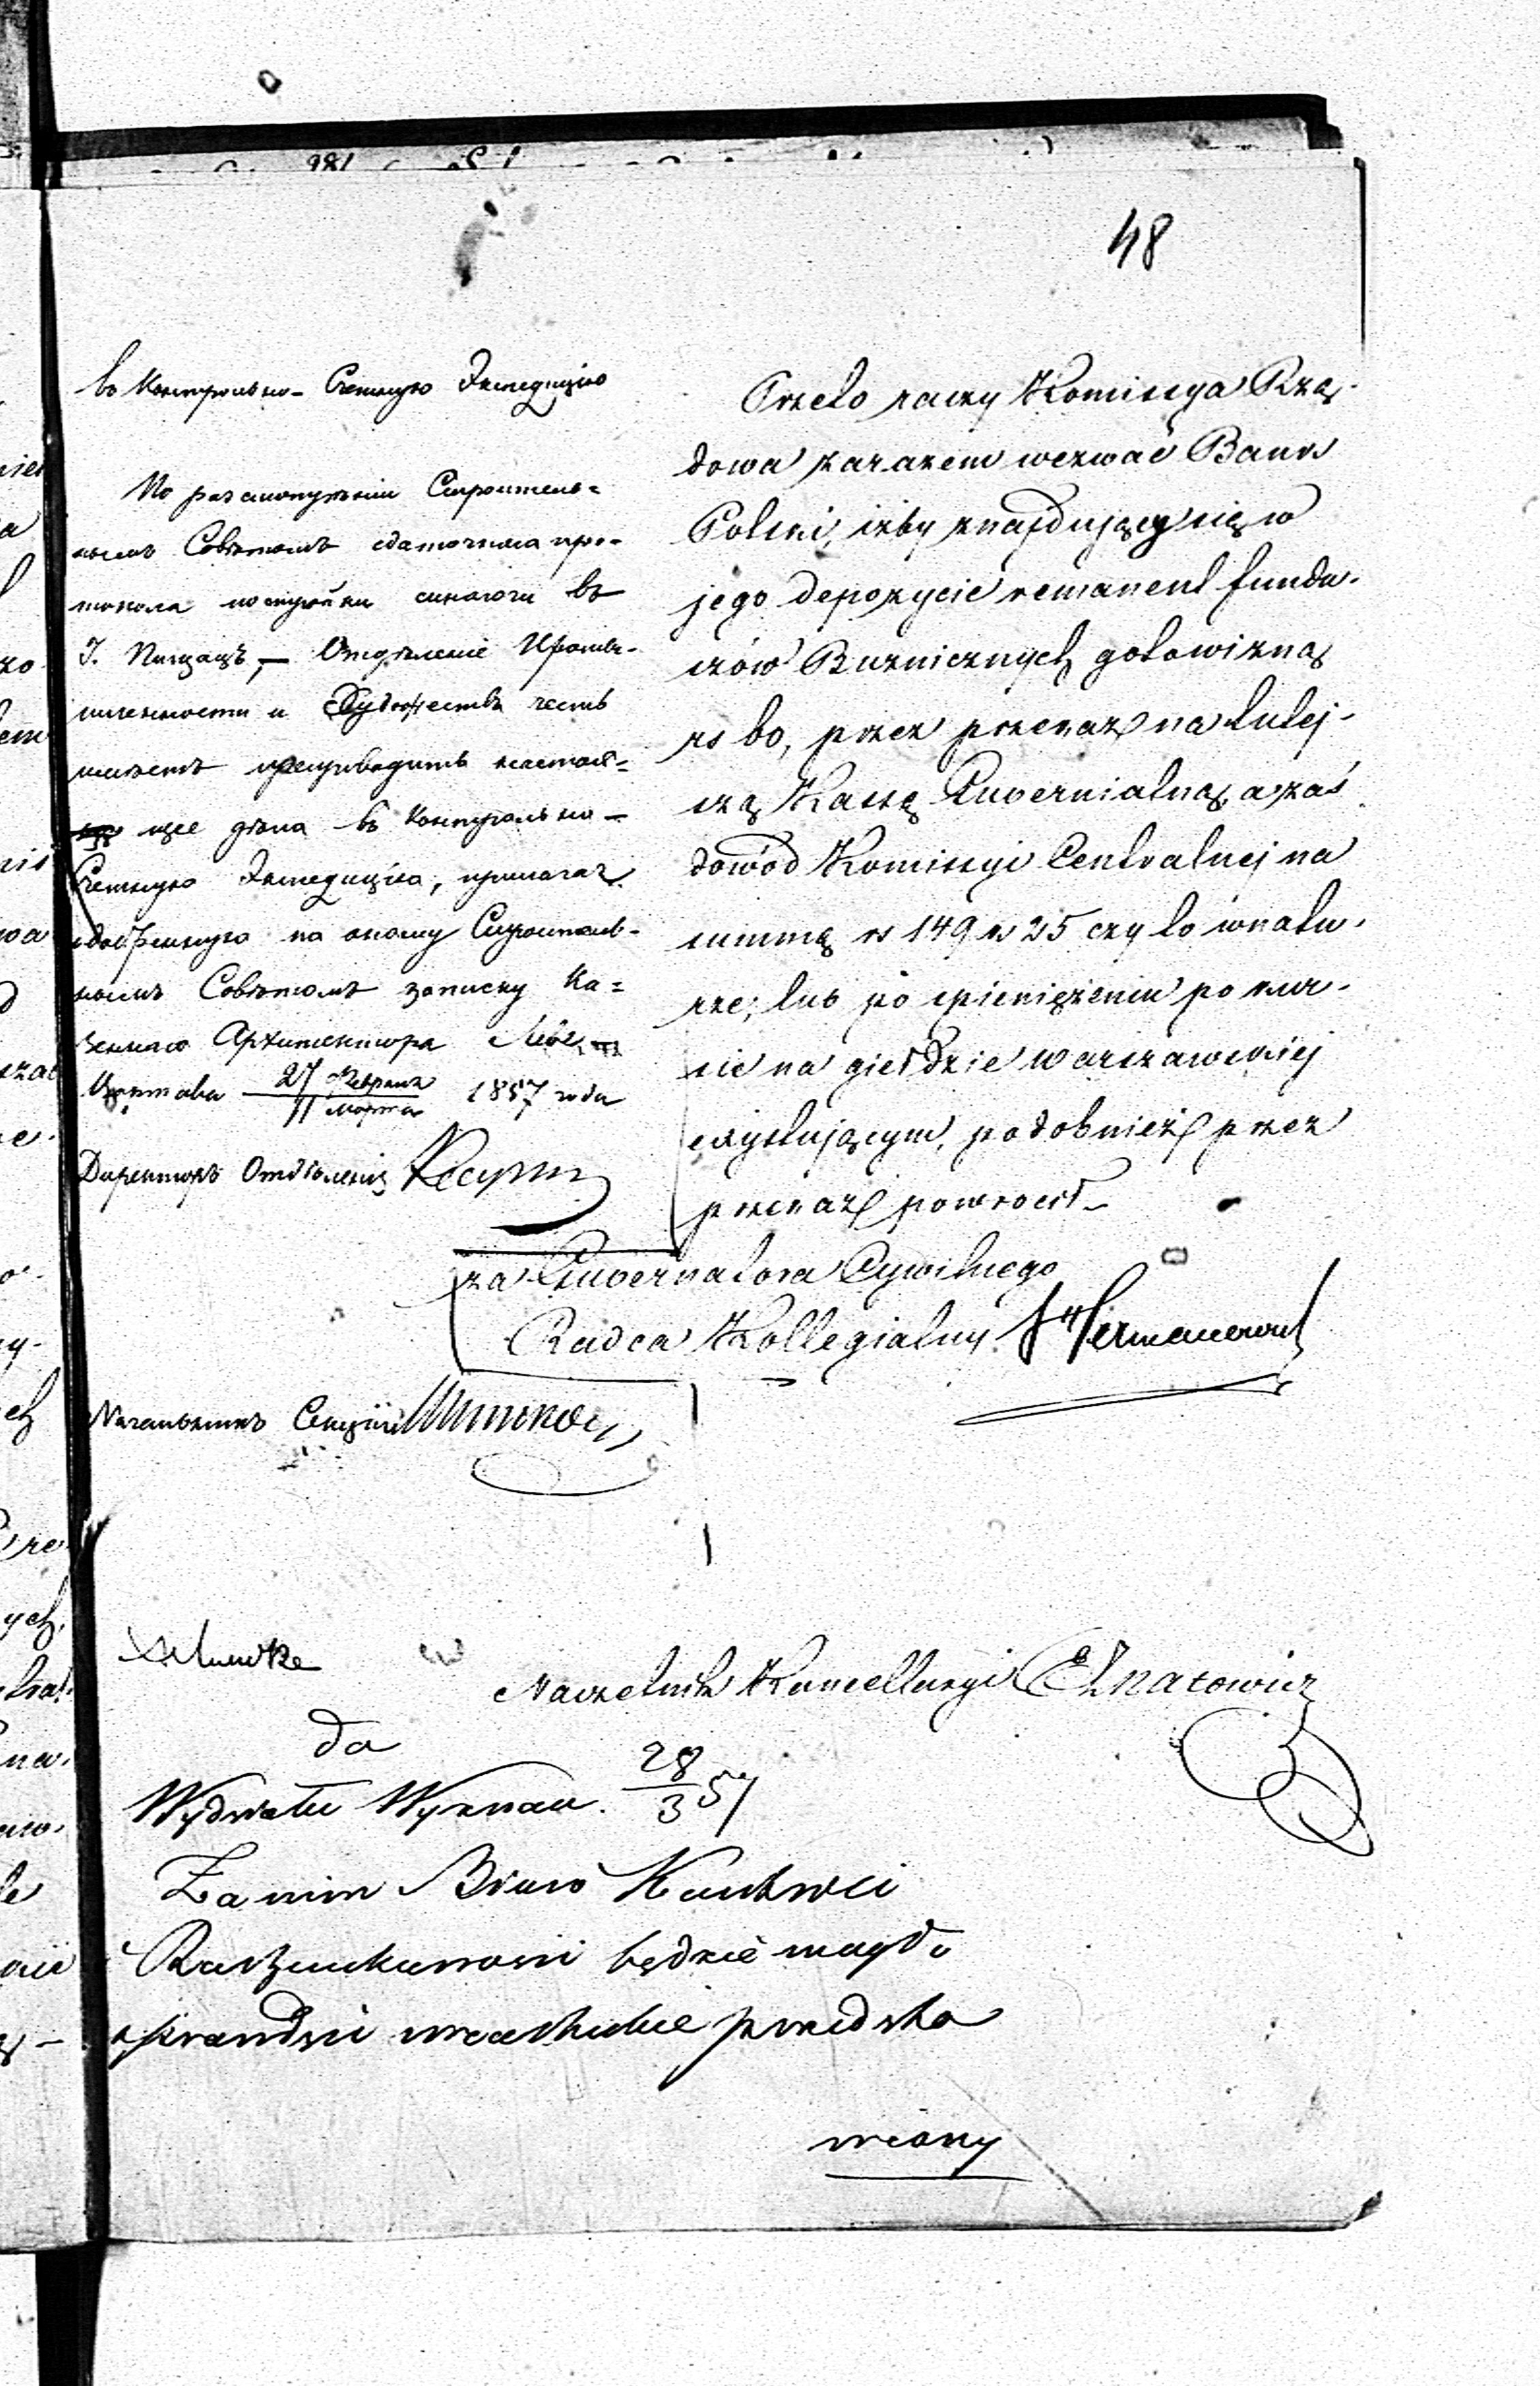 48
въ Контрольно-Счетную Экспедицію
По разсмотрѣніи Строитель=
нымъ Совѣтомъ сдаточнаго про-
токола постройки синагоги въ
Г. Пищацъ, — Отдѣленіе Промы-
шленности и Художествъ честь
имѣетъ препроводить настоя=
щее дѣло въ Контрольно-
Счетную Экспедицію, прилагая
одобренную по оному Строитель-
нымъ Совѣтомъ записку Ка=
зеннаго Архитектора
Варшава 27 Февраля / 11 Марта 1857 года
Директоръ Отдѣленія
Начальникъ Секціи
Przeto raczy Kommissya Rzą-
dowa zarazem wezwać Bank
Polski, iżby znajdujący się w
jego depozycie remanent fundu-
szów Bużnicznych gotowizną
rs 60, przez przekaz na tutej-
szą Kassę Gubernialną, a zaś
dowód Komissyi Centralnej na
summę rs 149 k 25 czy to w natu-
rze, lub po spieniężeniu po kur-
sie na giełdzie warszawskiej
exystującym, podobnież przez
przekaz powrócił.
za Gubernatora Cywilnego
Radca Kollegialny
Naczelnik Kancellaryi
do
Wydziału Wyznań. 28/3 57
Zanim Biuro Kontroli
Rachunkowości będzie mogło
sprawdzić rachunki przedsta
wiony